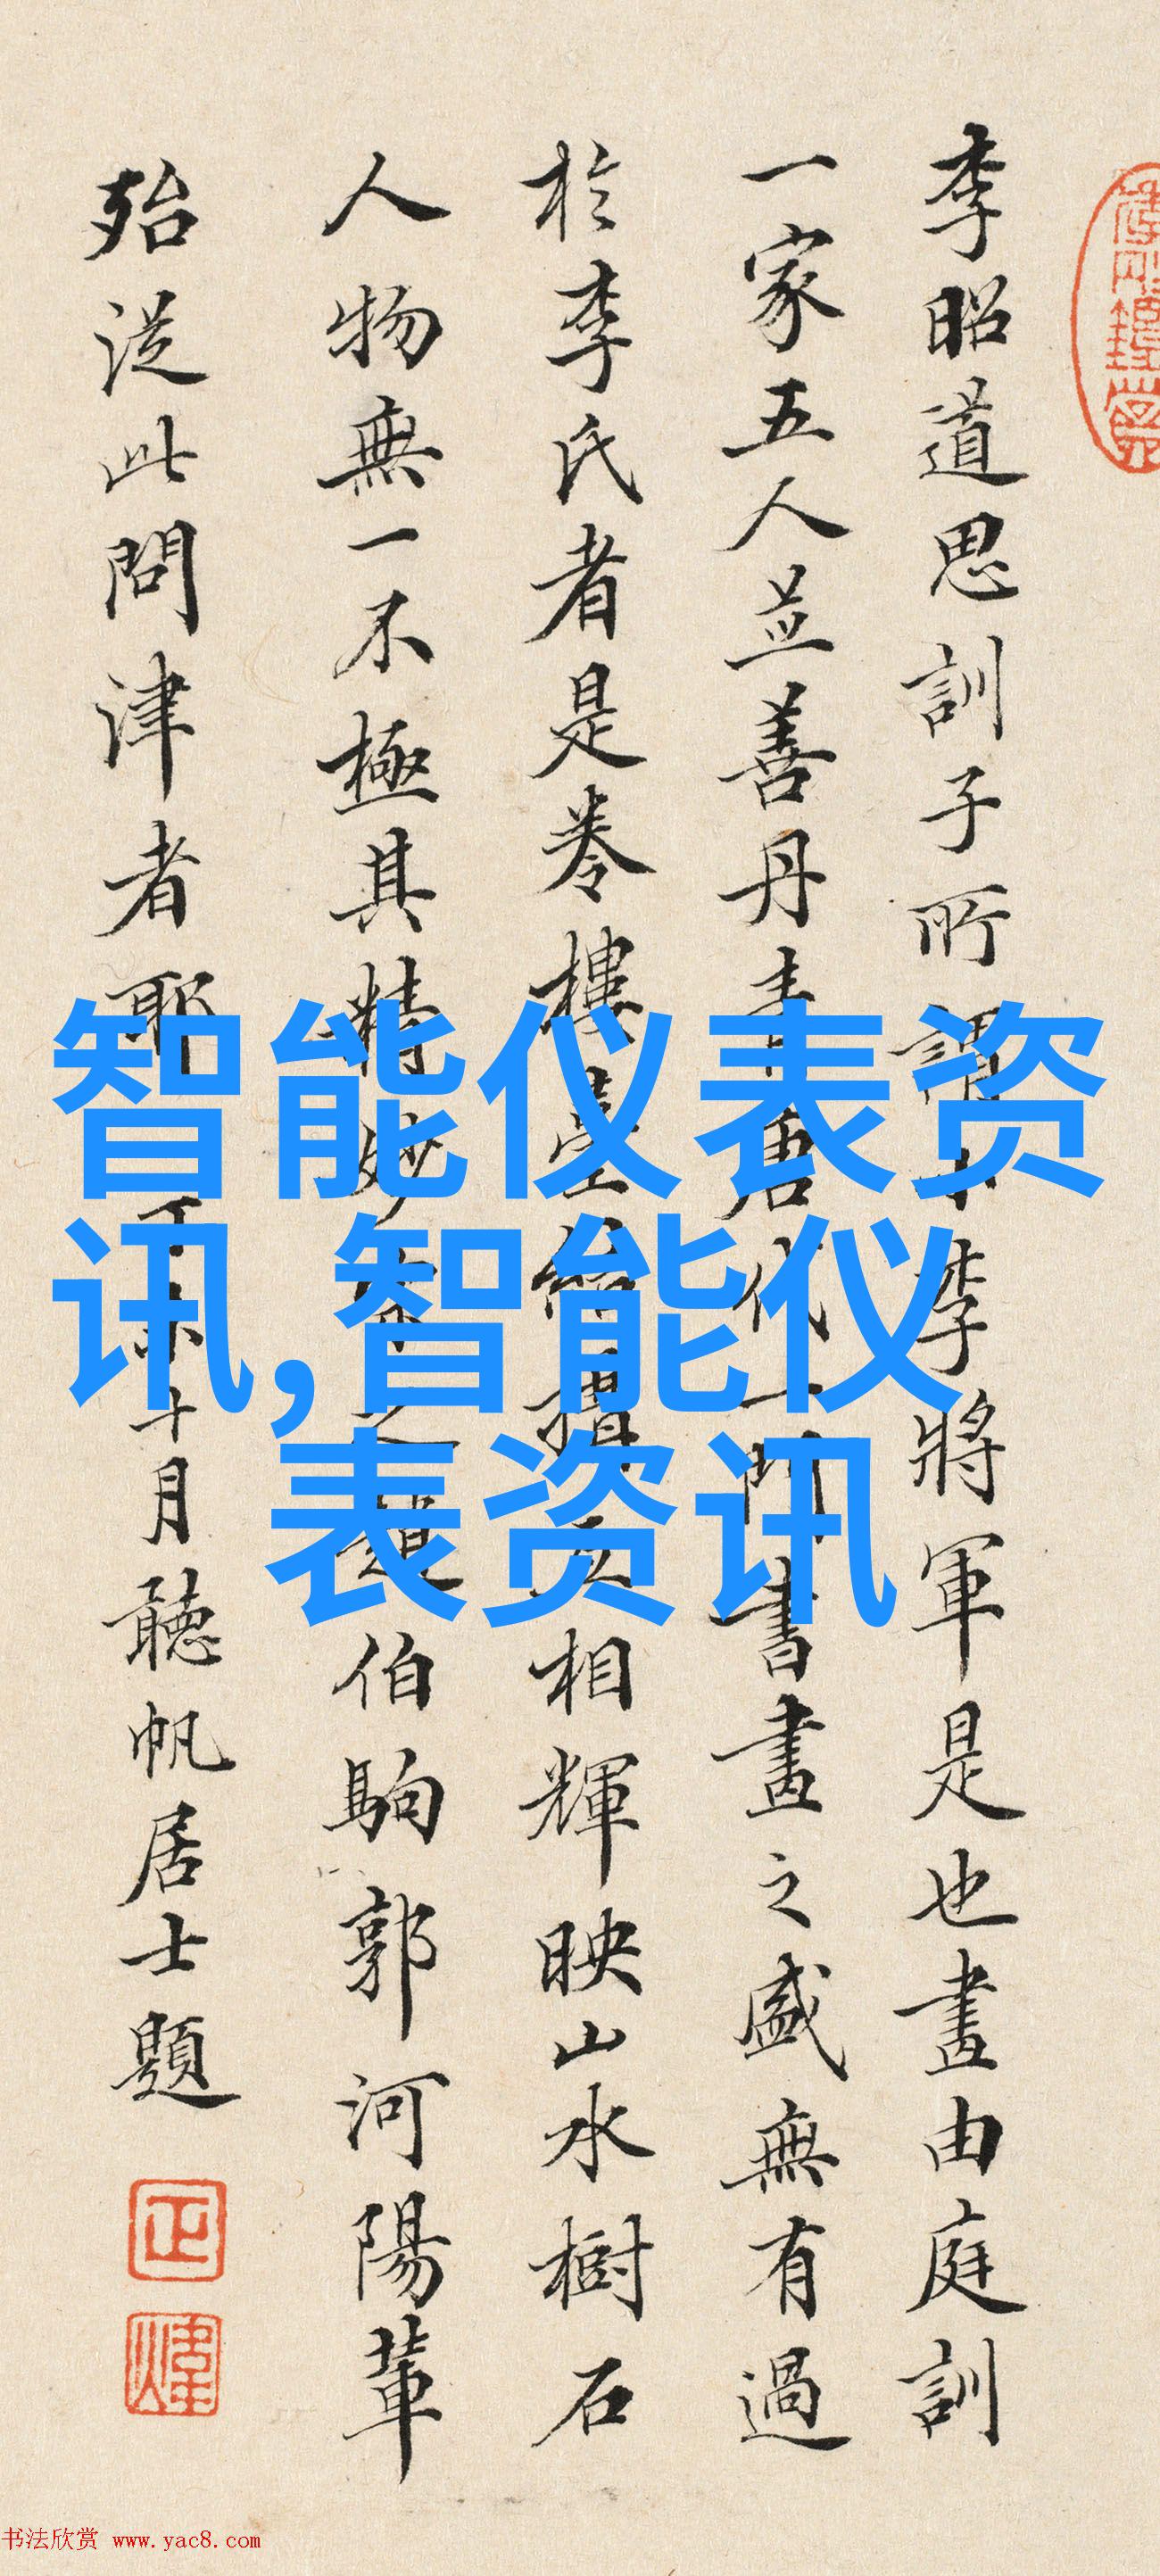 李昭道思訓子所謂小李將軍是也畫由庭訓
一家五人並善丹青唐代一門書畫之盛無有過
於李氏者是卷樓臺
相輝映山水樹石
人物無一不極其精妙
伯駒郭河陽輩
殆從此問津者耶
十月聽帆居士題
正
煒
智能仪表资
讯,智能仪
表资讯
书法欣赏 www.yac8.com